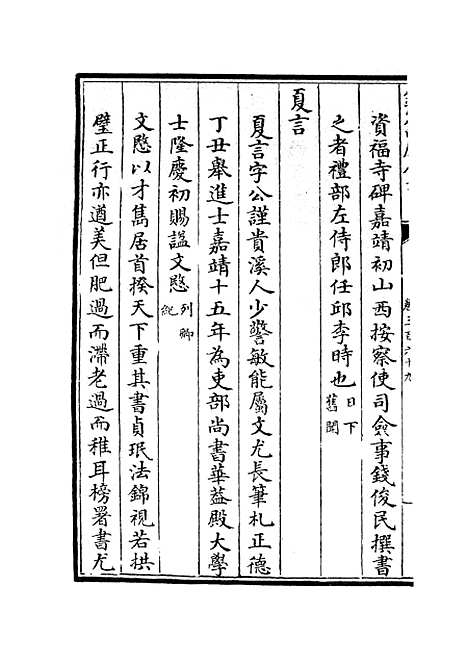 資福寺碑嘉靖初山西按察使司僉事錢俊民撰書
之者禮部左侍郎任邱李時也日下舊聞
夏言
夏言字公謹貴溪人少警敏能屬文尤長筆札正德
丁丑舉進士嘉靖十五年為吏部尚書華益殿大學
士隆慶初賜諡文愍列卿紀
文愍以才雋居首揆天下重其書貞珉法錦視若拱
璧正行亦遒美但肥過而滯老過而稚耳榜署書尤
卷三百六十九